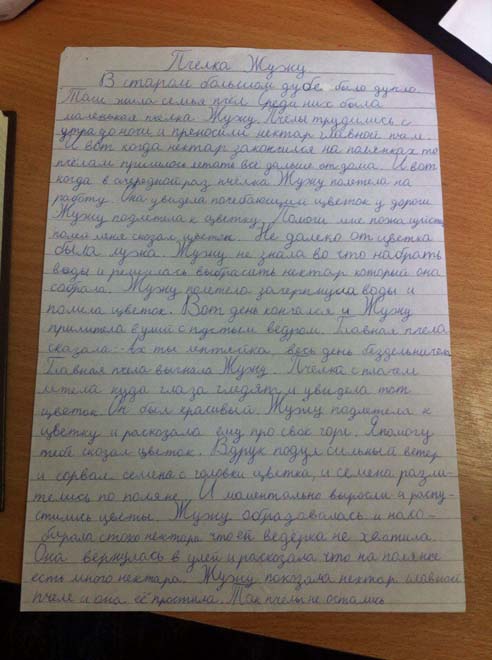 Пчёлка Жужу
В старом большом дубе было дупло.
Там жила семья пчёл. Среди них была
маленькая пчелка Жужу. Пчёлы трудились с
утра до ночи и приносили нектар главной пчеле.
И вот когда нектар закончился на полянках то
пчёлам пришлось летать всё дальше от дома. И вот
когда в очередной раз пчёлка Жужу полетела на
работу. Она увидела погебающий цветок у дороги
Жужу подлетела к цветку. Помоги мне пожалуйста
сказал цветок. Не далеко от цветка
была лужа. Жужу не знала во что набрать
воды и решилась выбрасить нектар который она
собрала. Жужу полетела зачерпнула воды и
полила цветок. Вот день кончался и Жужу
прилитела в улий с пустым ведром. Главная пчела
сказала: - ты лентяйка, весь день бездельничала
Главная пчела выгнала Жужу. Пчёлка с плачем
летела куда глаза глядят и увидела тот
цветок. Он был красивый. Жужу подлетела к
цветку и расказала ему про своё горе. Я помогу
тебе сказал цветок. Вдруг подул сильный ветер
и сорвал семена с головки цветка, и семена разле-
телись по поляне. И моментально выросли и распу-
стились цветы. Жужу обрадовалась и насо-
бирала стоко нектара что ей ведёрка не хватила.
Она вернулась в улей и расказала что на полянке
есть много нектара. Жужу показала нектар главной
пчеле и она её простила. Так пчёлы не остались